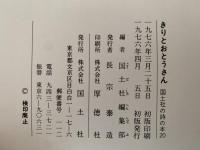 きりとおとうさん 国土社の詩の本20
一九七六年三月二十五日 初版印刷
一九七六年四月 五日 初版発行
編者 国土社編集部
発行者 長宗泰造
印刷所 株式会社 厚徳社
発行所 株式会社 国土社
東京都文京区目白台一―一七―六
郵便番号 一一二
電話 九四三―三七二一
振替 東京六―九〇六三一
© 検印廃止